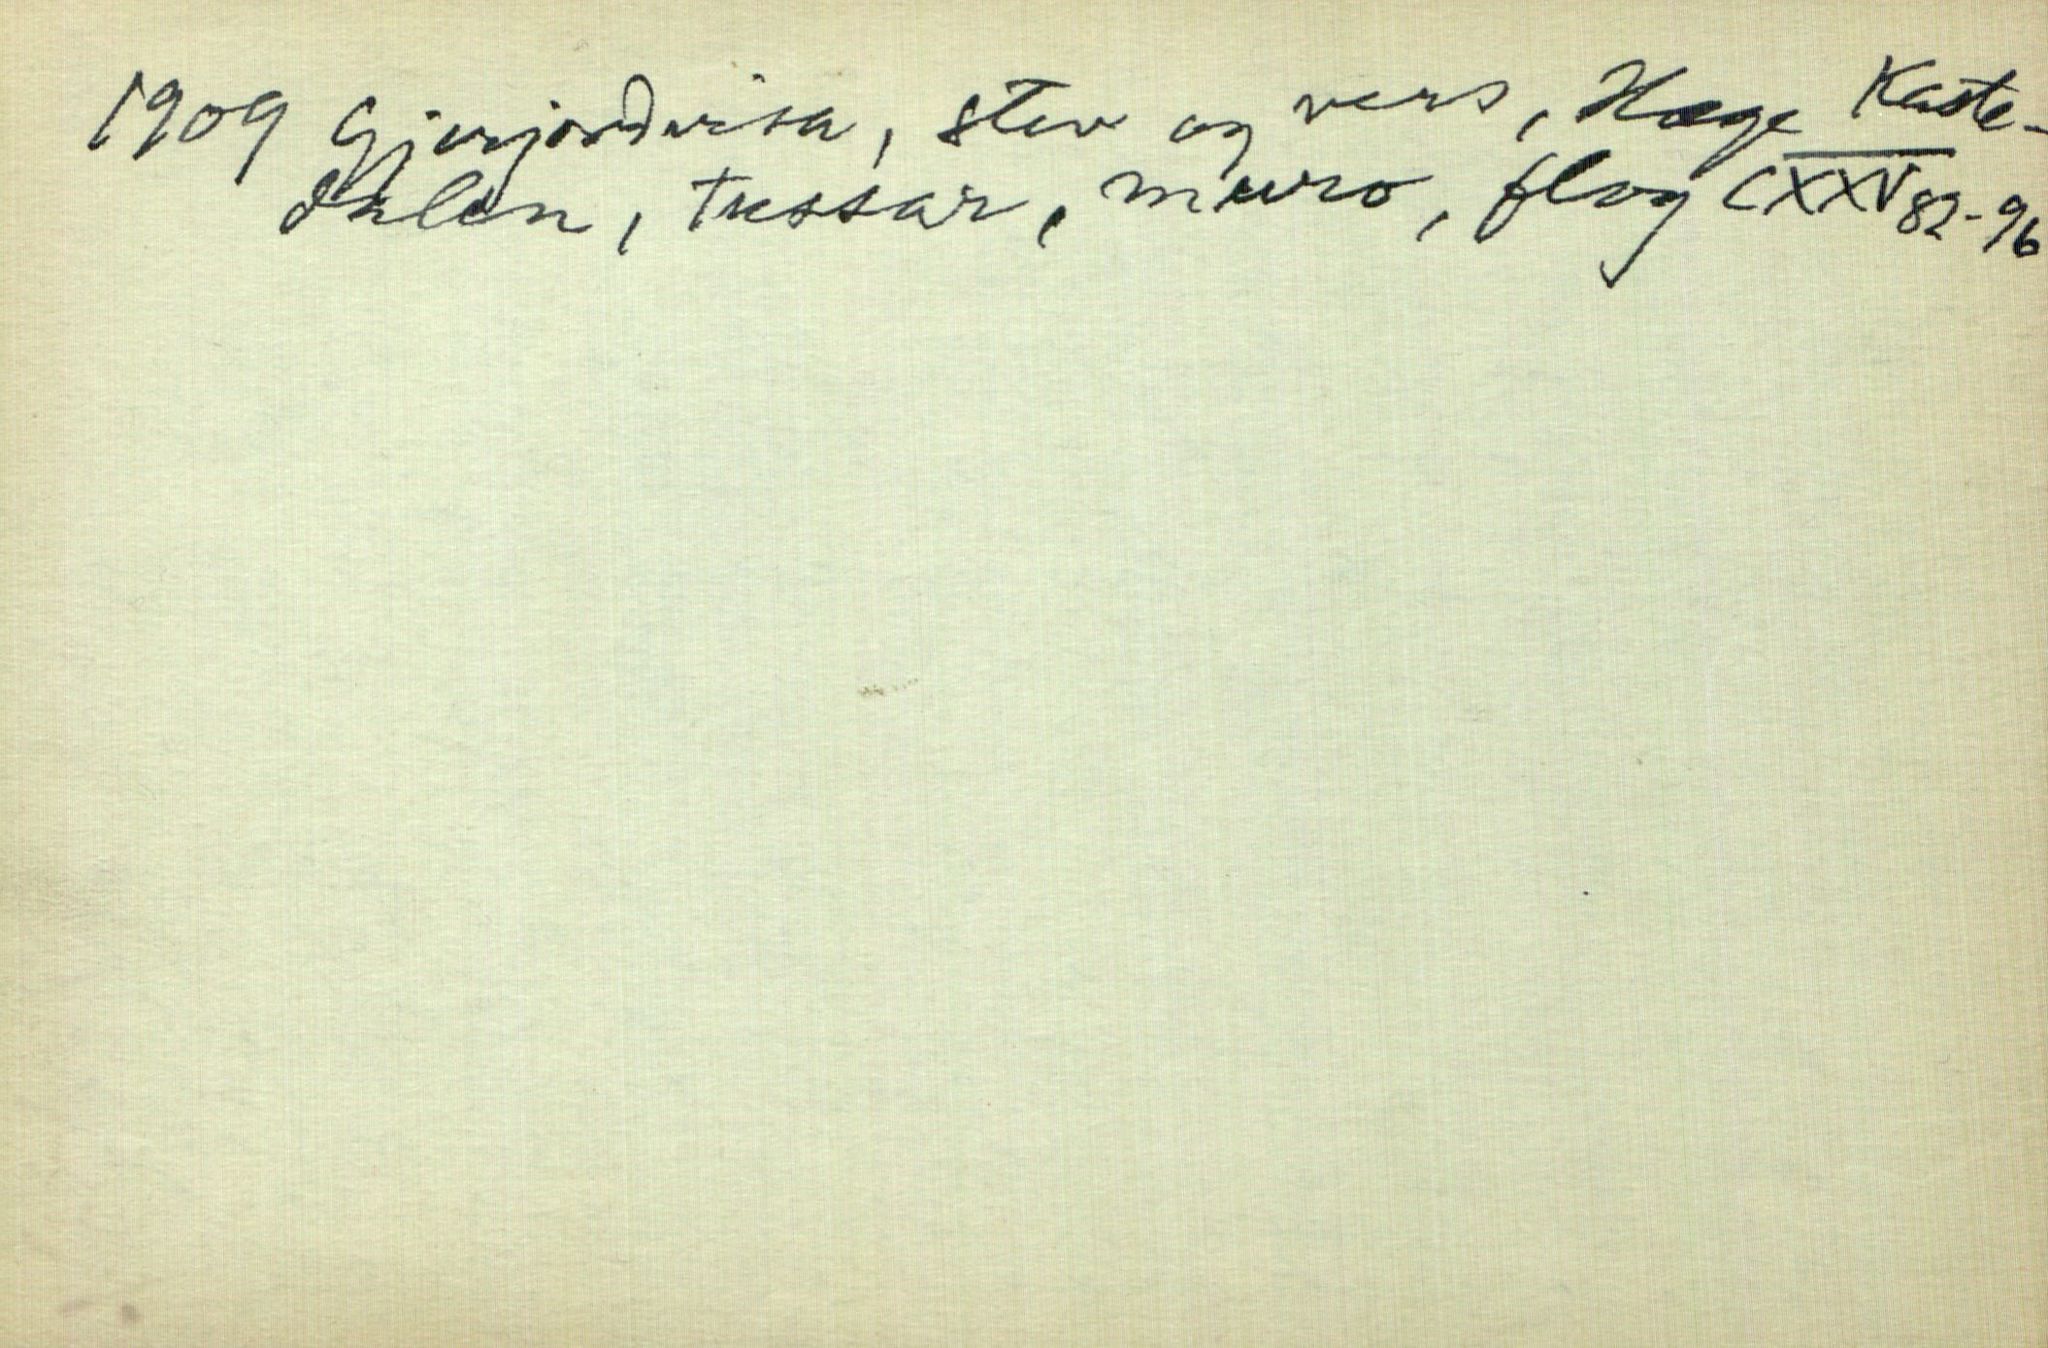 1909 Gjerjordvisa, stev og vers, Hæge Kaste-
dalen, tussar, muro, flog CXXV 82-96